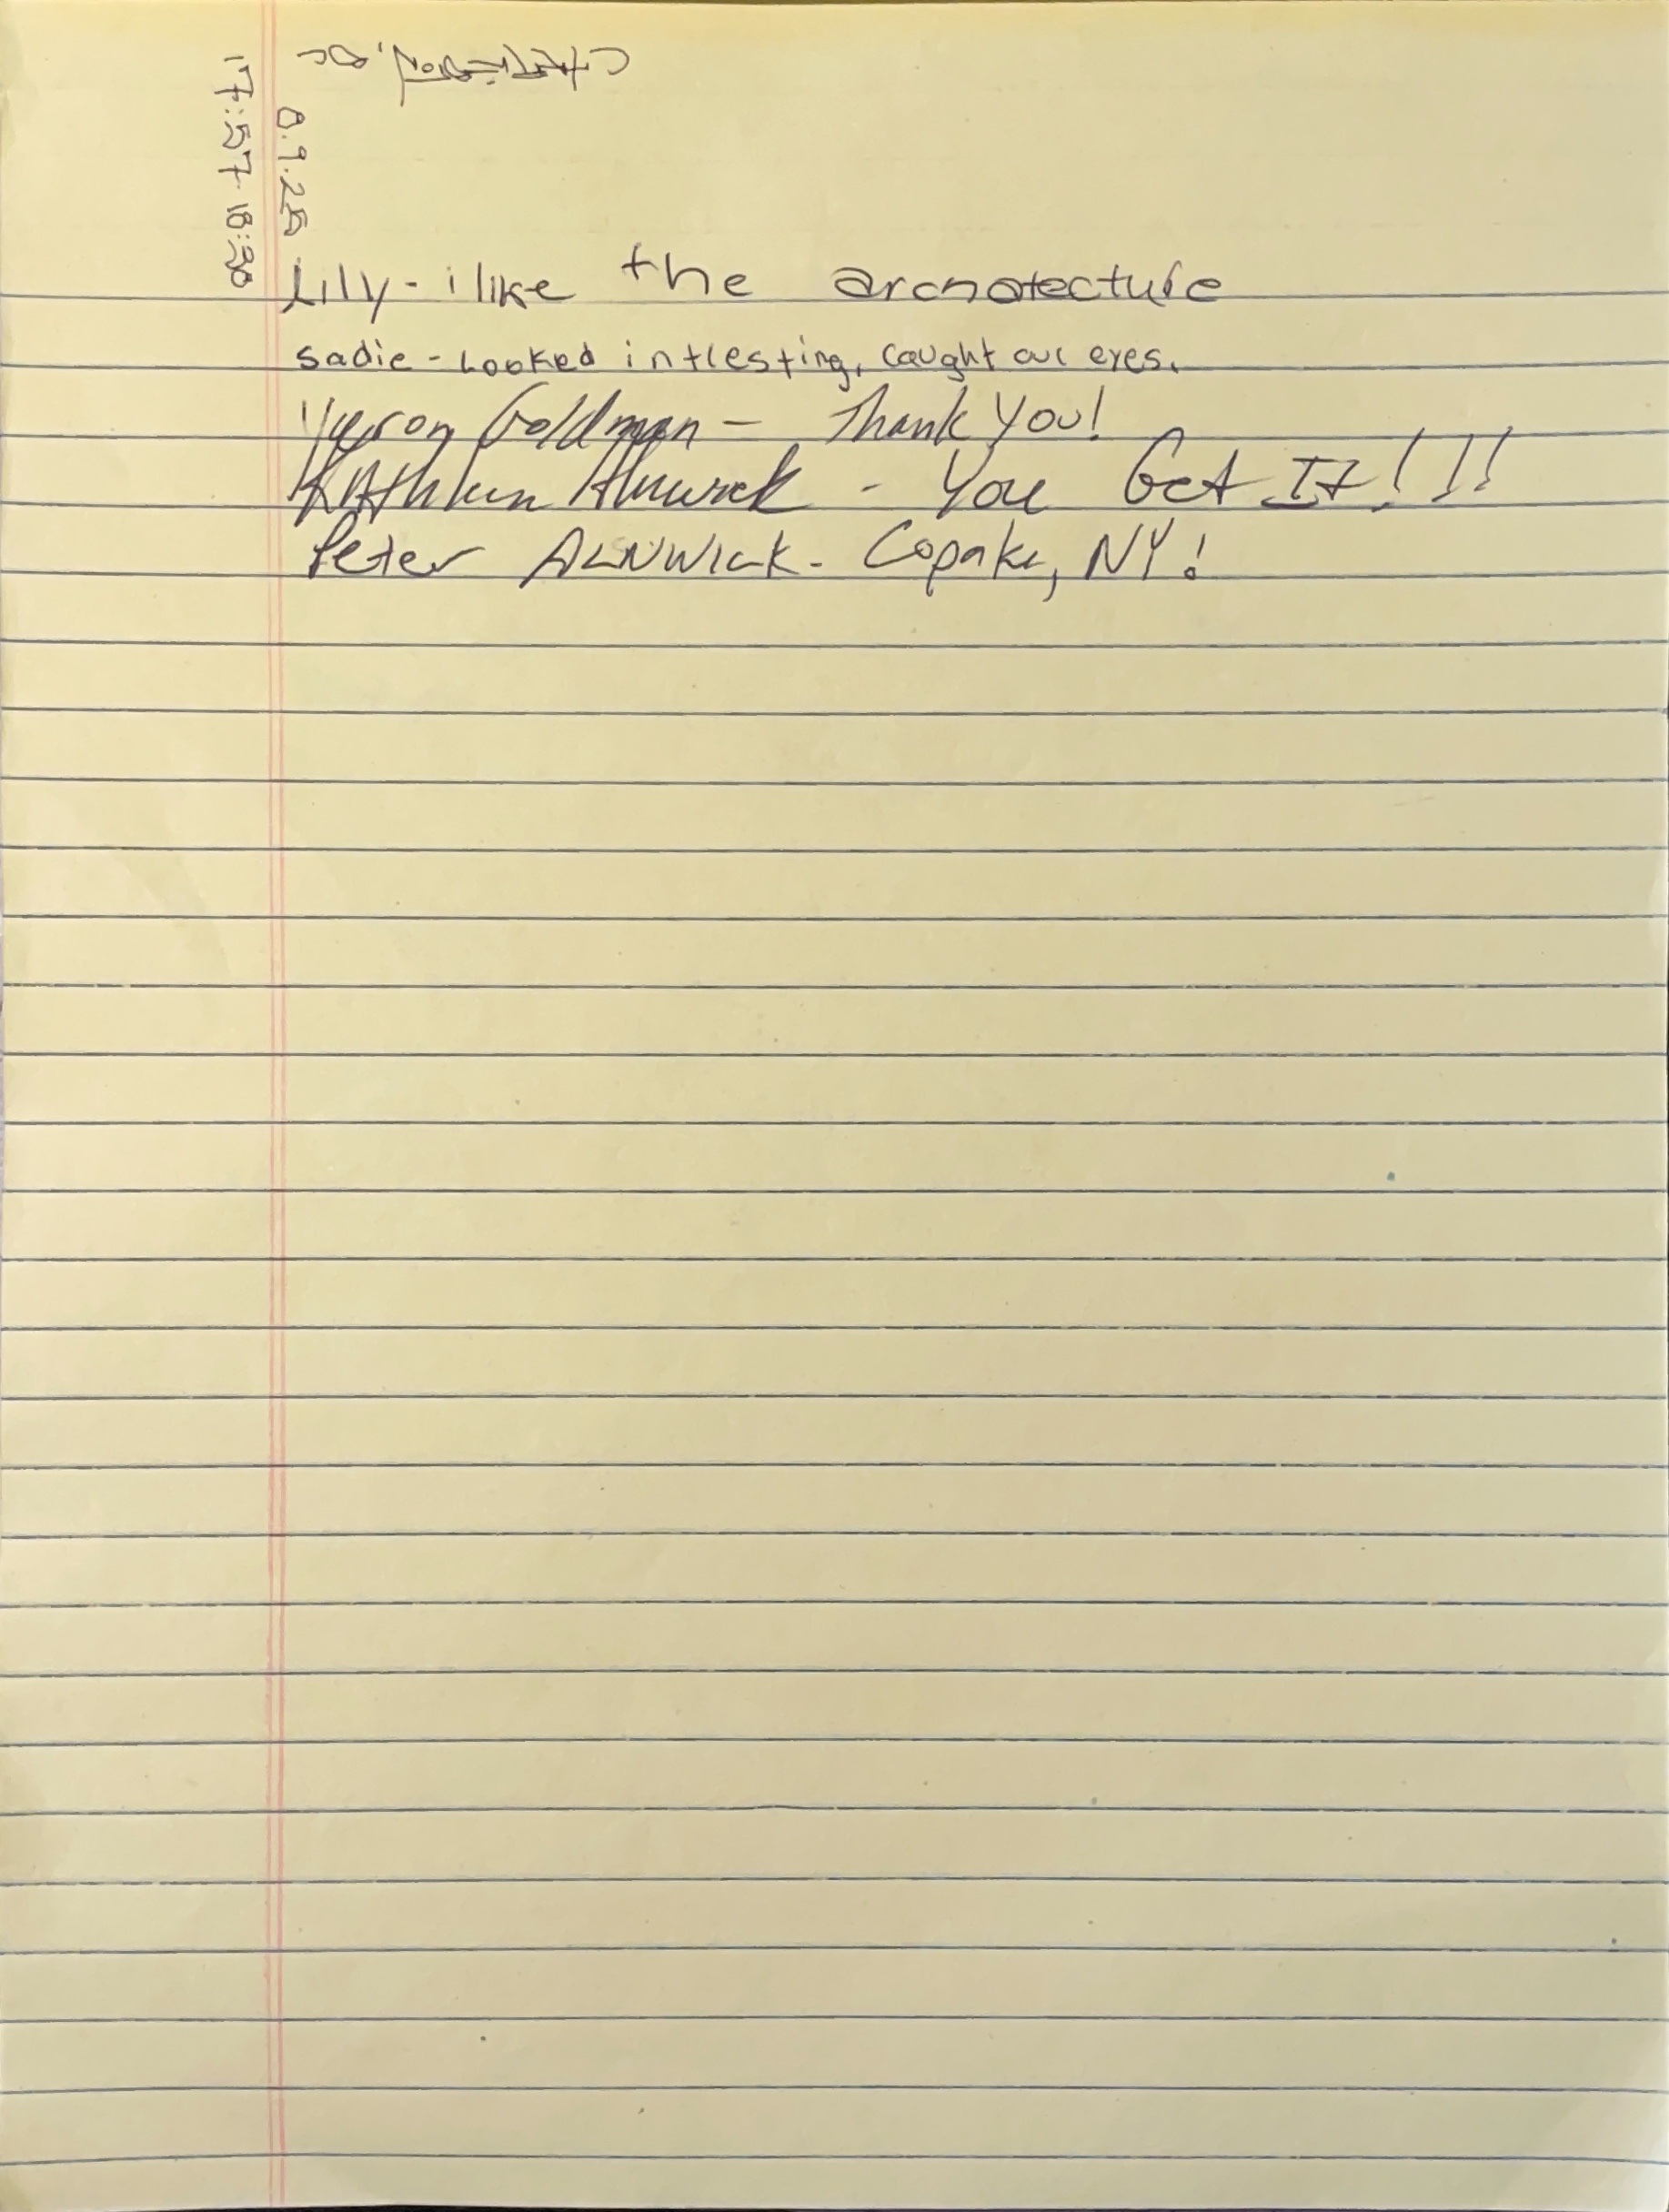 8.9.25
17:57-18:30
Lily - i like the archotecture
sadie - Looked intresting, caught our eyes.
Goldman - Thank You!
Kathleen Alnwick - You Get It!!!
Peter ALNWICK - Copake, NY!